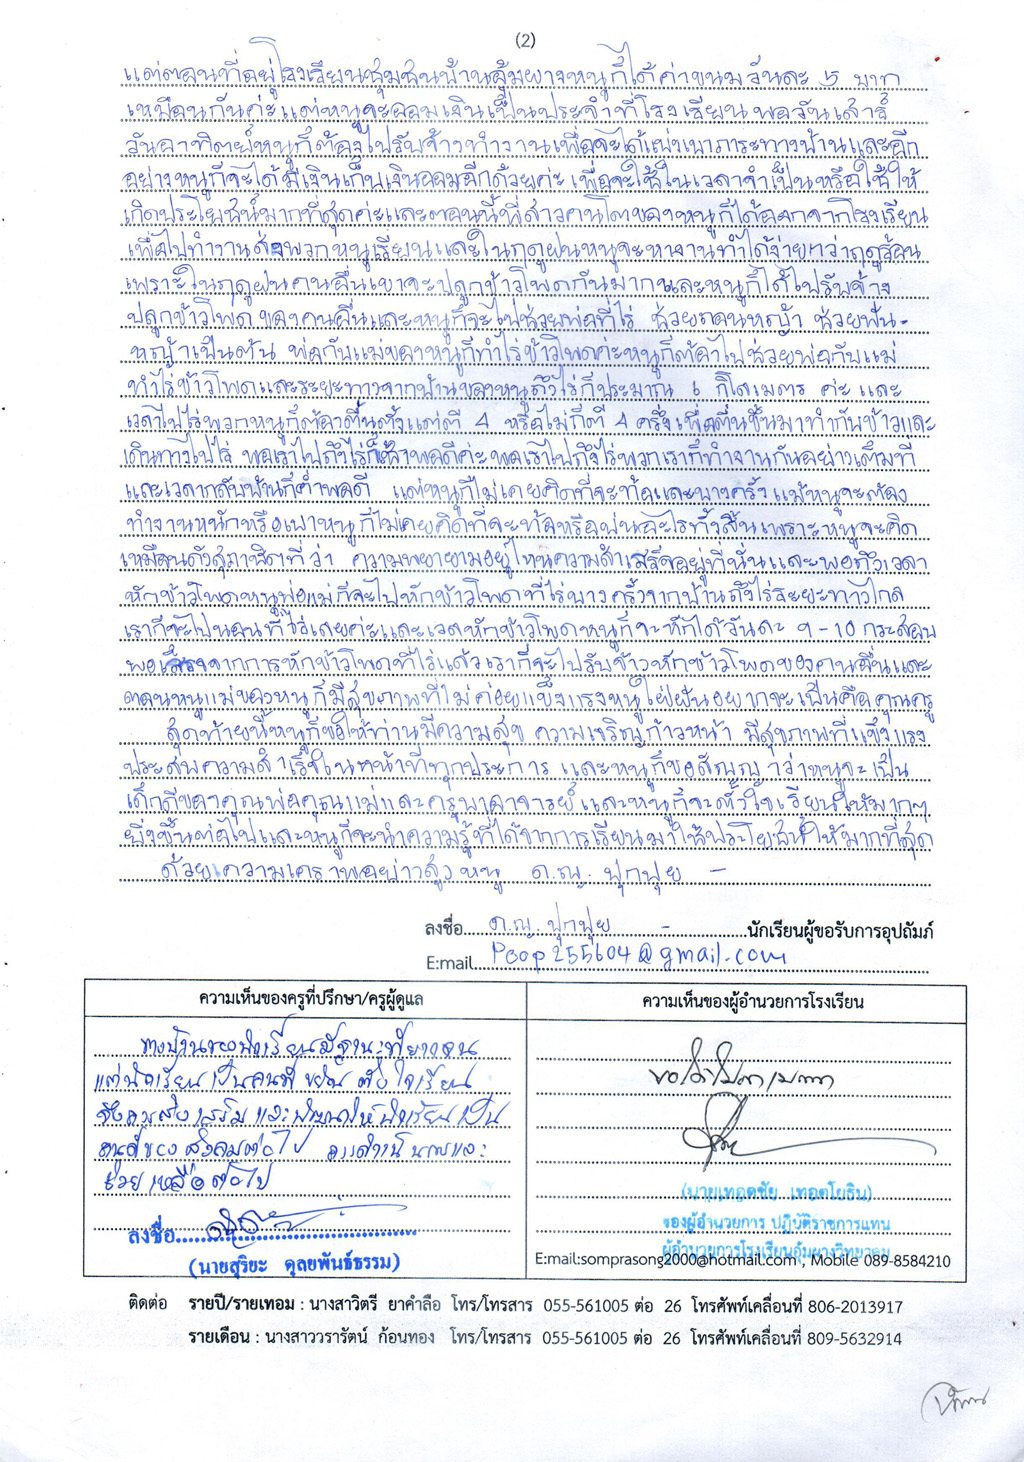 (2)
แต่ตอนที่อยู่โรงเรียนชุมชนบ้านอุ้มผางหนูก็ได้ค่าขนมวันละ 5 บาท
เหมือนกันค่ะ แต่หนูจะออมเงินเป็นประจำที่โรงเรียน พอวันเสาร์
วันอาทิตย์หนูก็ต้องไปรับจ้างทำงานเพื่อจะได้แบ่งเบาภาระทางบ้านและอีก
อย่างหนูก็จะได้มีเงินเก็บเงินออมอีกด้วยค่ะ เพื่อจะใช้ในเวลาจำเป็นหรือใช้ให้
เกิดประโยชน์มากที่สุดค่ะและตอนนี้พี่สาวคนโตของหนูก็ได้ออกจากโรงเรียน
เพื่อไปทำงานส่งพวกหนูเรียนและในฤดูฝนหนูจะหางานทำได้ง่ายกว่าฤดูร้อน
เพราะในฤดูฝนคนอื่นเขาจะปลูกข้าวโพดกันมากและหนูก็ได้ไปรับจ้าง
ปลูกข้าวโพด ของคนอื่นและหนูก็จะไปช่วยพ่อที่ไร่ ช่วยถอนหญ้า ช่วยพ่น-
หญ้าเป็นต้น พ่อกับแม่ของหนูก็ทำไร่ข้าวโพดค่ะหนูก็ต้องไปช่วยพ่อกับแม่
ทำไร่ข้าวโพดและระยะทางจากบ้านของหนูถึงไร่ก็ประมาณ 6 กิโลเมตร ค่ะ และ
เวลาไปไร่พวกหนูก็ต้องตื่นตั้งแต่ตี 4 หรือไม่ก็ตี 4 ครึ่งเพื่อตื่นขึ้นมาทำกับข้าวและ
เดินทางไปไร่ พอเราไปถึงไร่ก็เช้าพอดีค่ะ พอเราไปถึงไร่พวกเราก็ทำงานกันอย่างเต็มที่
และเวลากลับบ้านก็ค่ำพอดี แต่หนูก็ไม่เคยคิดที่จะท้อและบางครั้งแม้หนูจะต้อง
ทำงานหนักหรือเบาหนูก็ไม่เคยคิดที่จะท้อหรือบ่นอะไรทั้งสิ้นเพราะหนูจะคิด
เหมือนดังสุภาษิตที่ ว่า ความพยายามอยู่ไหนความสำเสร็จอยู่ที่นั่นและพอถึงเวลา
หักข้าวโพดหนูพ่อแม่ก็จะไปหักข้าวโพดที่ไร่บางครั้งจากบ้านถึงไร่ระยะทางไกล
เราก็จะไปนอนที่ไร่เลยค่ะและเวลาหักข้าวโพดหนูก็จะหักได้วันละ 9-10 กระสอบ
จากการหักข้าวโพดที่ไร่แล้วเราก็จะไปรับจ้างหักข้าวโพดของคนอื่นและ
ตอนหนูแม่ของหนูก็มีสุขภาพที่ไม่ค่อยแข็งแรงหนูใฝ่ฝันอยากจะเป็นคือคุณครู
สุดท้ายนี้หนูก็ขอให้ท่านมีความสุข ความเจริญก้าวหน้า มีสุขภาพที่แข็งแรง
ประสบความสำเร็จในหน้าที่ทุกประการ และหนูก็ขอสัญญาว่าหนูจะเป็น
เด็กดีของคุณพ่อคุณแม่และครูบาอาจารย์และหนูก็จะตั้งใจเรียนให้มากๆ
ยิ่งขึ้นต่อไปและหนูก็จะนำความรู้ที่ได้จากการเรียนมาใช้ประโยชน์ให้มากที่สุด
ด้วยความเคารพอย่างสูง หนู ด.ญ. ปุกปุย -
ลงชื่อ ด.ญ. ปุกปุย - นักเรียนผู้ขอรับการอุปถัมภ์
E:mail Poop255604@gmail.com
ความเห็นของครูที่ปรึกษา/ครูผู้ดูแล
ทางบ้านของนักเรียนมีฐานะที่ยากจน
แต่นักเรียนเป็นคนที่ ขยัน ตั้งใจเรียน
จึงควรส่งเสริม และพัฒนาให้นักเรียนเป็น
คนดีของ สังคมต่อไป
ช่วยเหลือต่อไป
ลงชื่อ
(นายสุริยะ ดุลยพันธ์ธรรม)
ความเห็นของผู้อำนวยการโรงเรียน
ขอได้โปรดเมตตา
(นายเทอดชัย เทอดโยธิน)
รองผู้อำนวยการ ปฏิบัติราชการแทน
ผู้อำนวยการโรงเรียนอุ้มผางวิทยาคม
E:mail:somprasong2000@hotmail.com , Mobile 089-8584210
ติดต่อ รายปี/รายเทอม : นางสาวิตรี ยาคำลือ โทร/โทรสาร 055-561005 ต่อ 26 โทรศัพท์เคลื่อนที่ 806-2013917
รายเดือน : นางสาววรารัตน์ ก้อนทอง โทร/โทรสาร 055-561005 ต่อ 26 โทรศัพท์เคลื่อนที่ 809-5632914